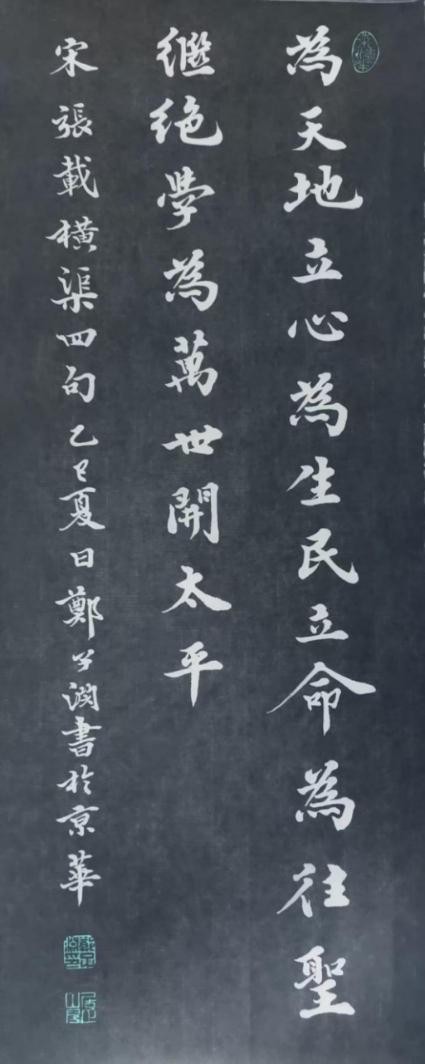 為天地立心為生民立命為往聖
繼絶學為萬世開太平
宋張載橫渠四句乙巳夏日鄭書於京華